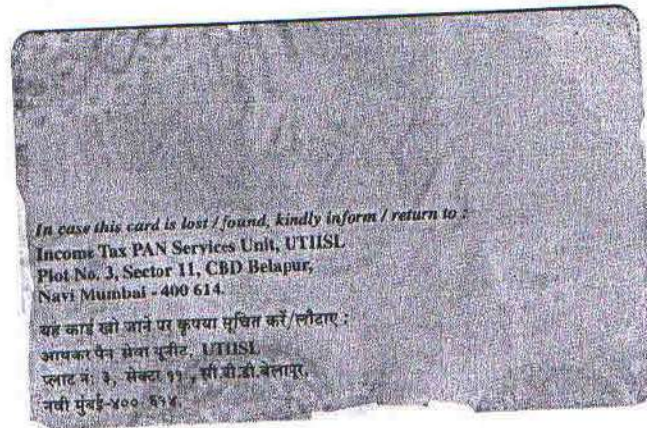 In case this card is lost / found, kindly inform / return to :
Income Tax PAN Services Unit, UTIISL
Plot No. 3, Sector 11, CBD Belapur,
Navi Mumbai - 400 614.
यह कार्ड खो जाने पर कृपया सूचित करें/लौटाए :
आयकर पैन सेवा यूनीट, UTIISL
प्लाट नः ३, सेक्टर ११ , सी.बी.डी.बेलापूर,
नवी मुंबई-४०० ६१४.